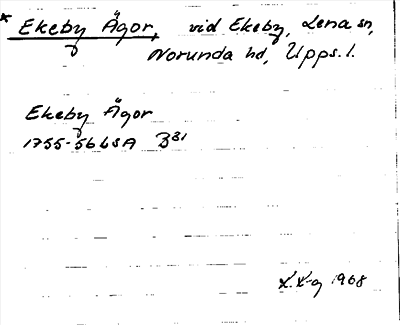 * Ekeby Ägor, vid Ekeby, Lena sn,
Norunda hd, Upps. l.
Ekeby Ägor
1755-56 LSA B31
1968